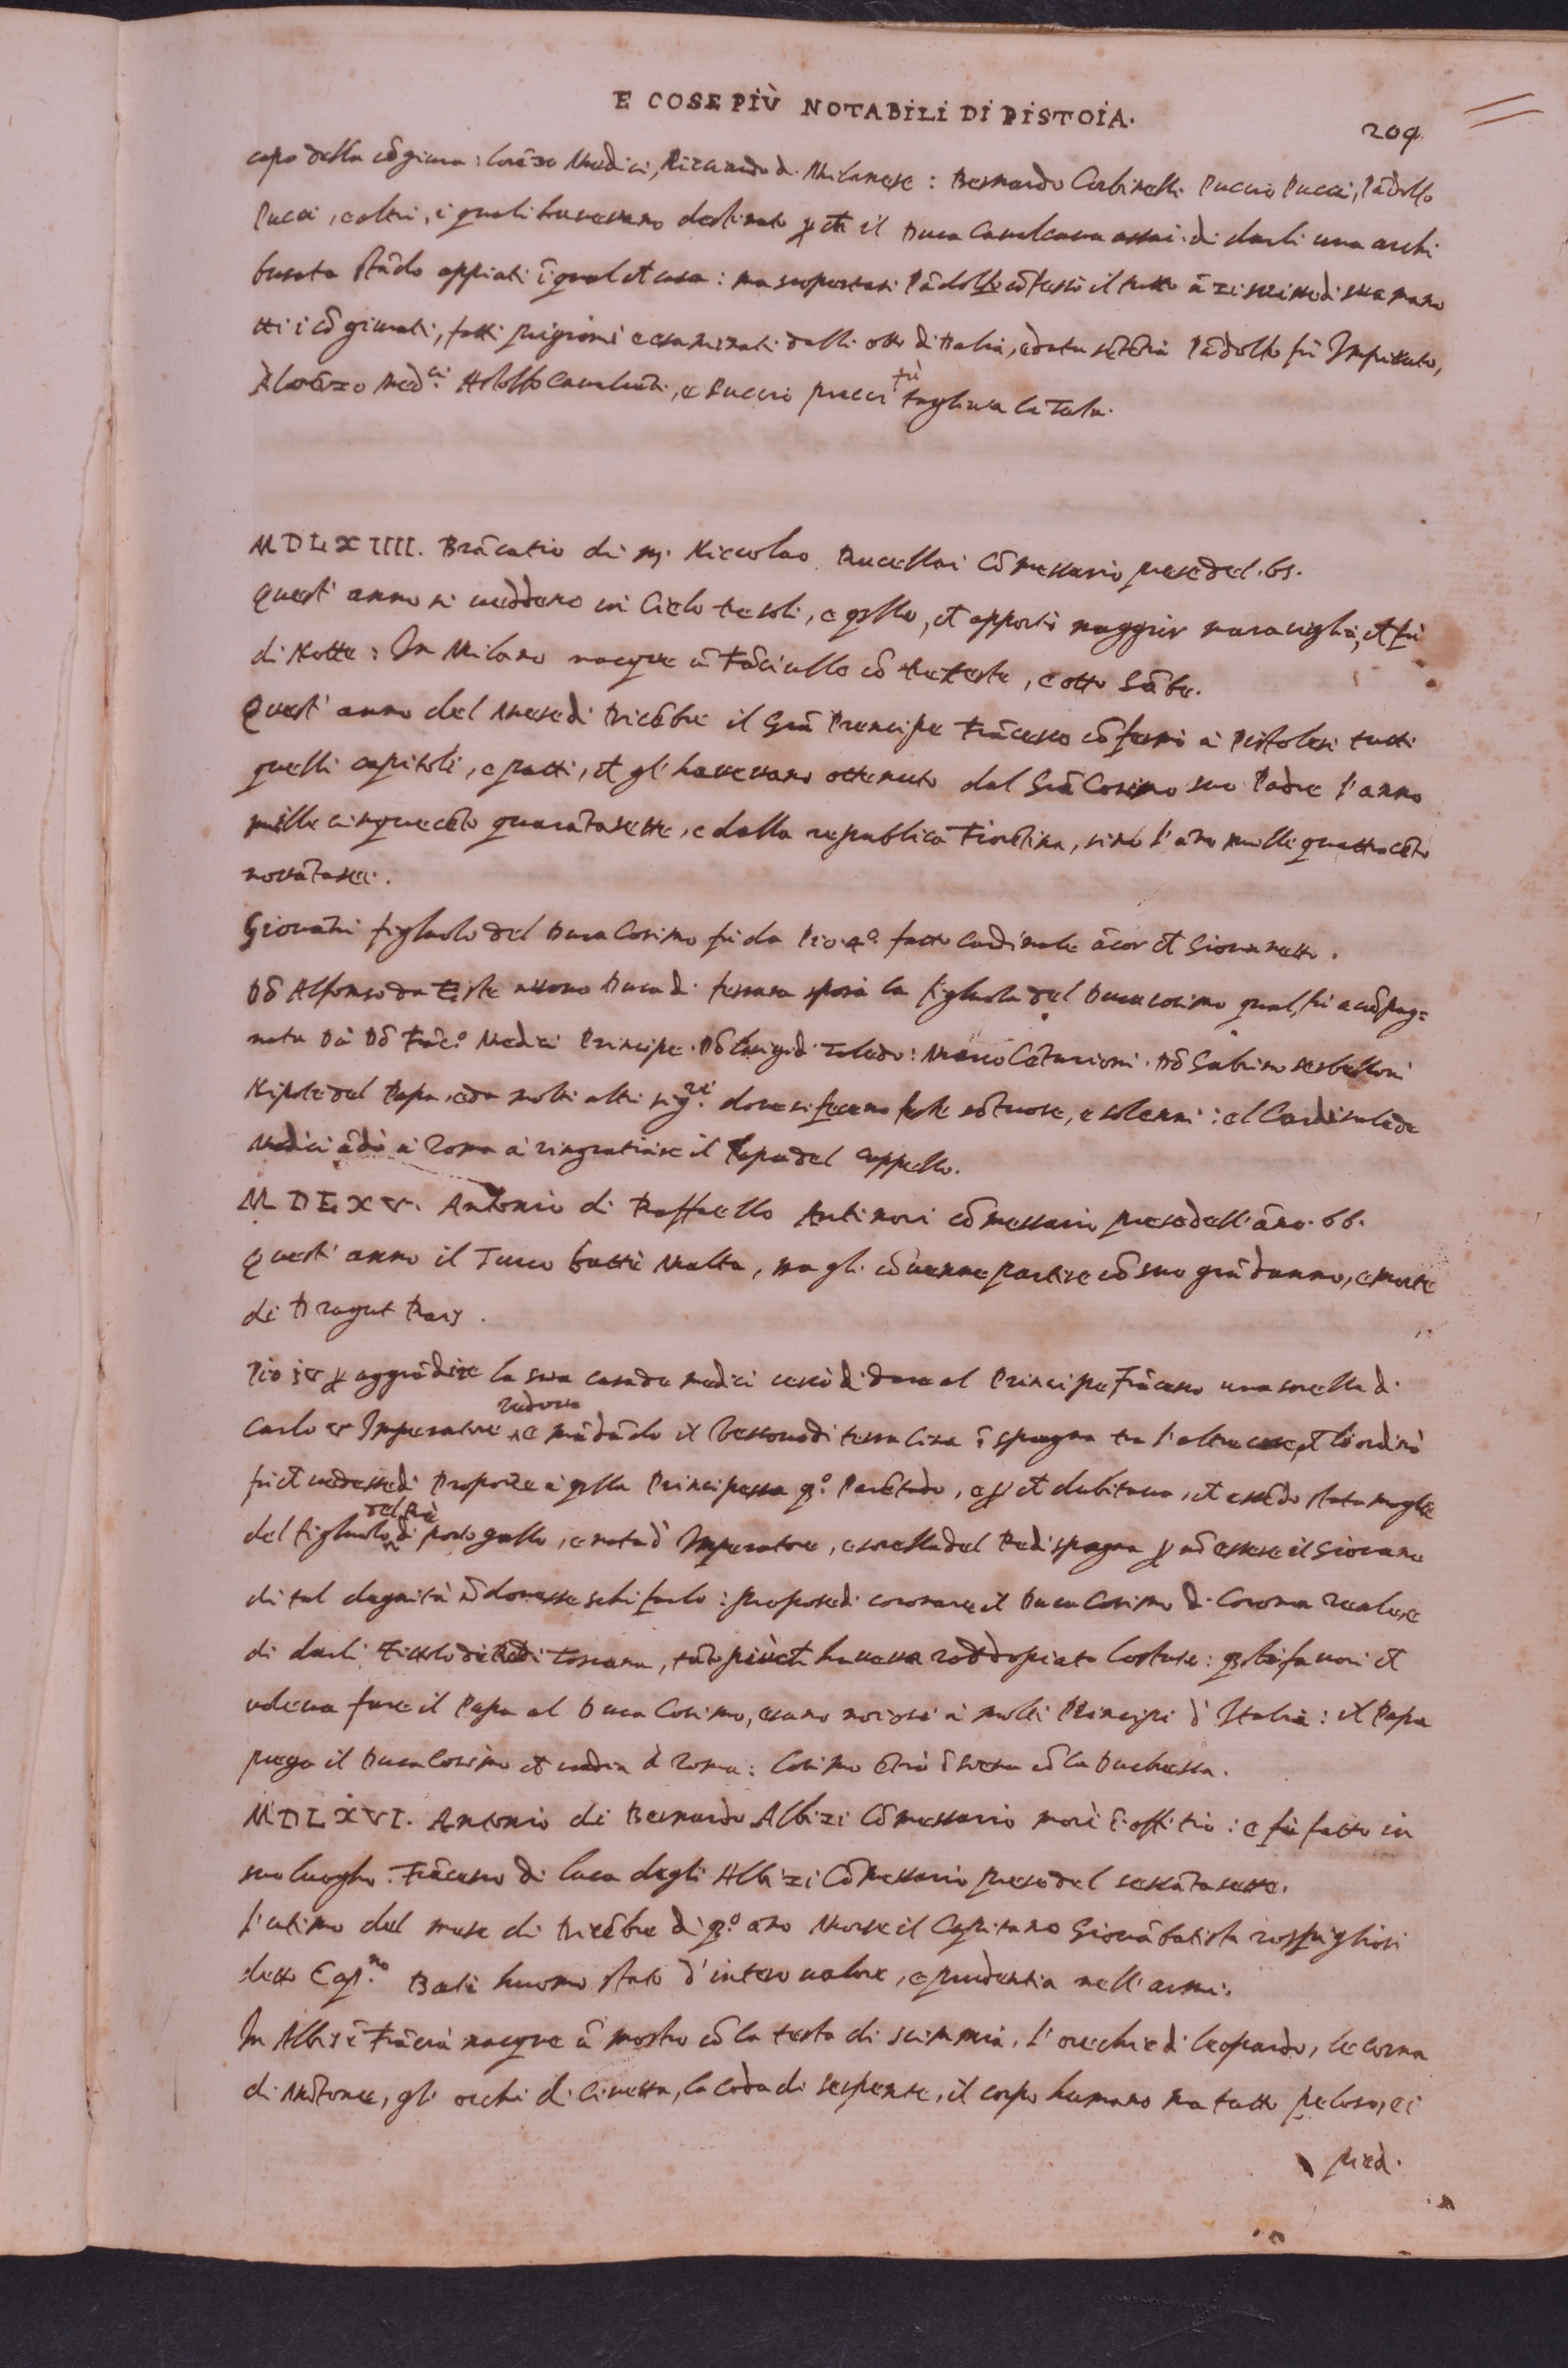 E COSE PIÙ NOTABILI DI PISTOIA.
209
capo della cõgiura: lorẽzo Medici, Ricciardo d. Milanese: Bernardo Corbinelli Puccio Pucci, Pãdolfo
Pucci, e altri, i quali havevano destinato ꝑ ch il Duca Cavalcava assai di darli una archi
busata stãdo appiati ĩ qual ch casa: ma scopertasi Pãdolfo cõfessò il tutto
tti i cõgiurati, fatti prigioni e esaminati dalli otto di Balia, e data sẽtẽtia Pãdolfo fù Impiccato,
A lorẽzo Med.ci Astolfo Cavalcãti, e Puccio pucci fù tagliata la Testa.
MDLXIIII. Brãcatio di M. Niccolao Rucellai Cõmessario prese del .65.
Quest' anno si veddero in Cielo tre soli, e qllo, ch apportò maggior maraviglia, ch fù
di Notte: In Milano nacque ũ Fãciullo cõ tre teste, e otto Gãbe.
Quest' anno del Mese di Dicẽbre il Grã Prencipe Frãcesco cõfermò à Pistolesi tutti
quelli capitoli, e patti, ch gl' havevano ottenuto dal Grã Cosimo suo Padre l' anno
mille cinquecẽto quarãtasette, e dalla republica Fiorẽtina, sino l' ãno mille quattrocẽto
novãtasei.
Giovãni figliuolo del Duca Cosimo fù da Pio .4.º fatto Cardinale ãcor ch Giovanetto.
Dõ Alfonso da Este nuovo Duca di ferrara sposò la figliuola del Duca cosimo qual fù acõpag=
nata Da Dõ Frãc.º Medici Principe. Dõ luigi di Toledo: Marco Cẽturioni. Dõ Gabrino serbelloni
Nipote del Papa, e da molti altri sig.ri dove si fecero feste sõtuose, e solenni: el Cardinale de
Medici ãdò à Roma à ringratiare il Papa del cappello.
MDLXV. Antonio di Raffaello Antinori cõmessario prese dell' ãno .66.
Quest' anno il Turco battè Malta, ma gli cõvenne partire cõ suo grã danno, e morte
di Dragut Rais.
Pio iv ꝑ aggrãdire la sua casa de medici cercò di dare al Principe Frãcesco una sorella di
Carlo V Imperatore vedova e mãdãdo il Vescovo di terracina ĩ spagna tra l' altre cose, ch li ordinò
fù ch vedesse di Proporre à qlla Principessa q.º Parẽtado, e ꝑ ch dubitava, ch essẽdo stata moglie
del figliuolo del Rè di portogallo, e nata d' Imperatore, e sorella del Re di spagna ꝑ nõ essere il Giovane
di tal degnità nõ dovesse schifarlo: propose di coronare il Duca Cosimo di Corona reale, e
di darli Titolo di Re di Toscana, tãto più ch haveva raddopiato lo stato: qsti favori ch
voleva fare il Papa al Duca Cosimo, erano noiosi à molti Principi d' Italia: il Papa
prega il Duca Cosimo ch vadia à Roma: Cosimo ẽtrò ĩ siena cõ la Duchessa.
MDLXVI. Antonio di Bernardo Albizi Cõmessario morì ĩ offitio: e fù fatto in
suo luogho. Frãcesco di luca degli Albizi Cõmessario prese del sessãtasette.
L' ultimo del mese di Dicẽbre di q.º ãno Morse il Capitano Giovãbatista rospigliosi
detto Cap.no Bati huomo stato d' intero valore, e prudentia nell' armi.
In Albi ĩ Frãcia nacque ũ mostro cõ la testa di scimmia, l' orechie di leopardo, le corna
di Mõtone, gli occhi di Civetta, la coda di serpente, il corpo humano ma tutto peloso, e i
piedi.